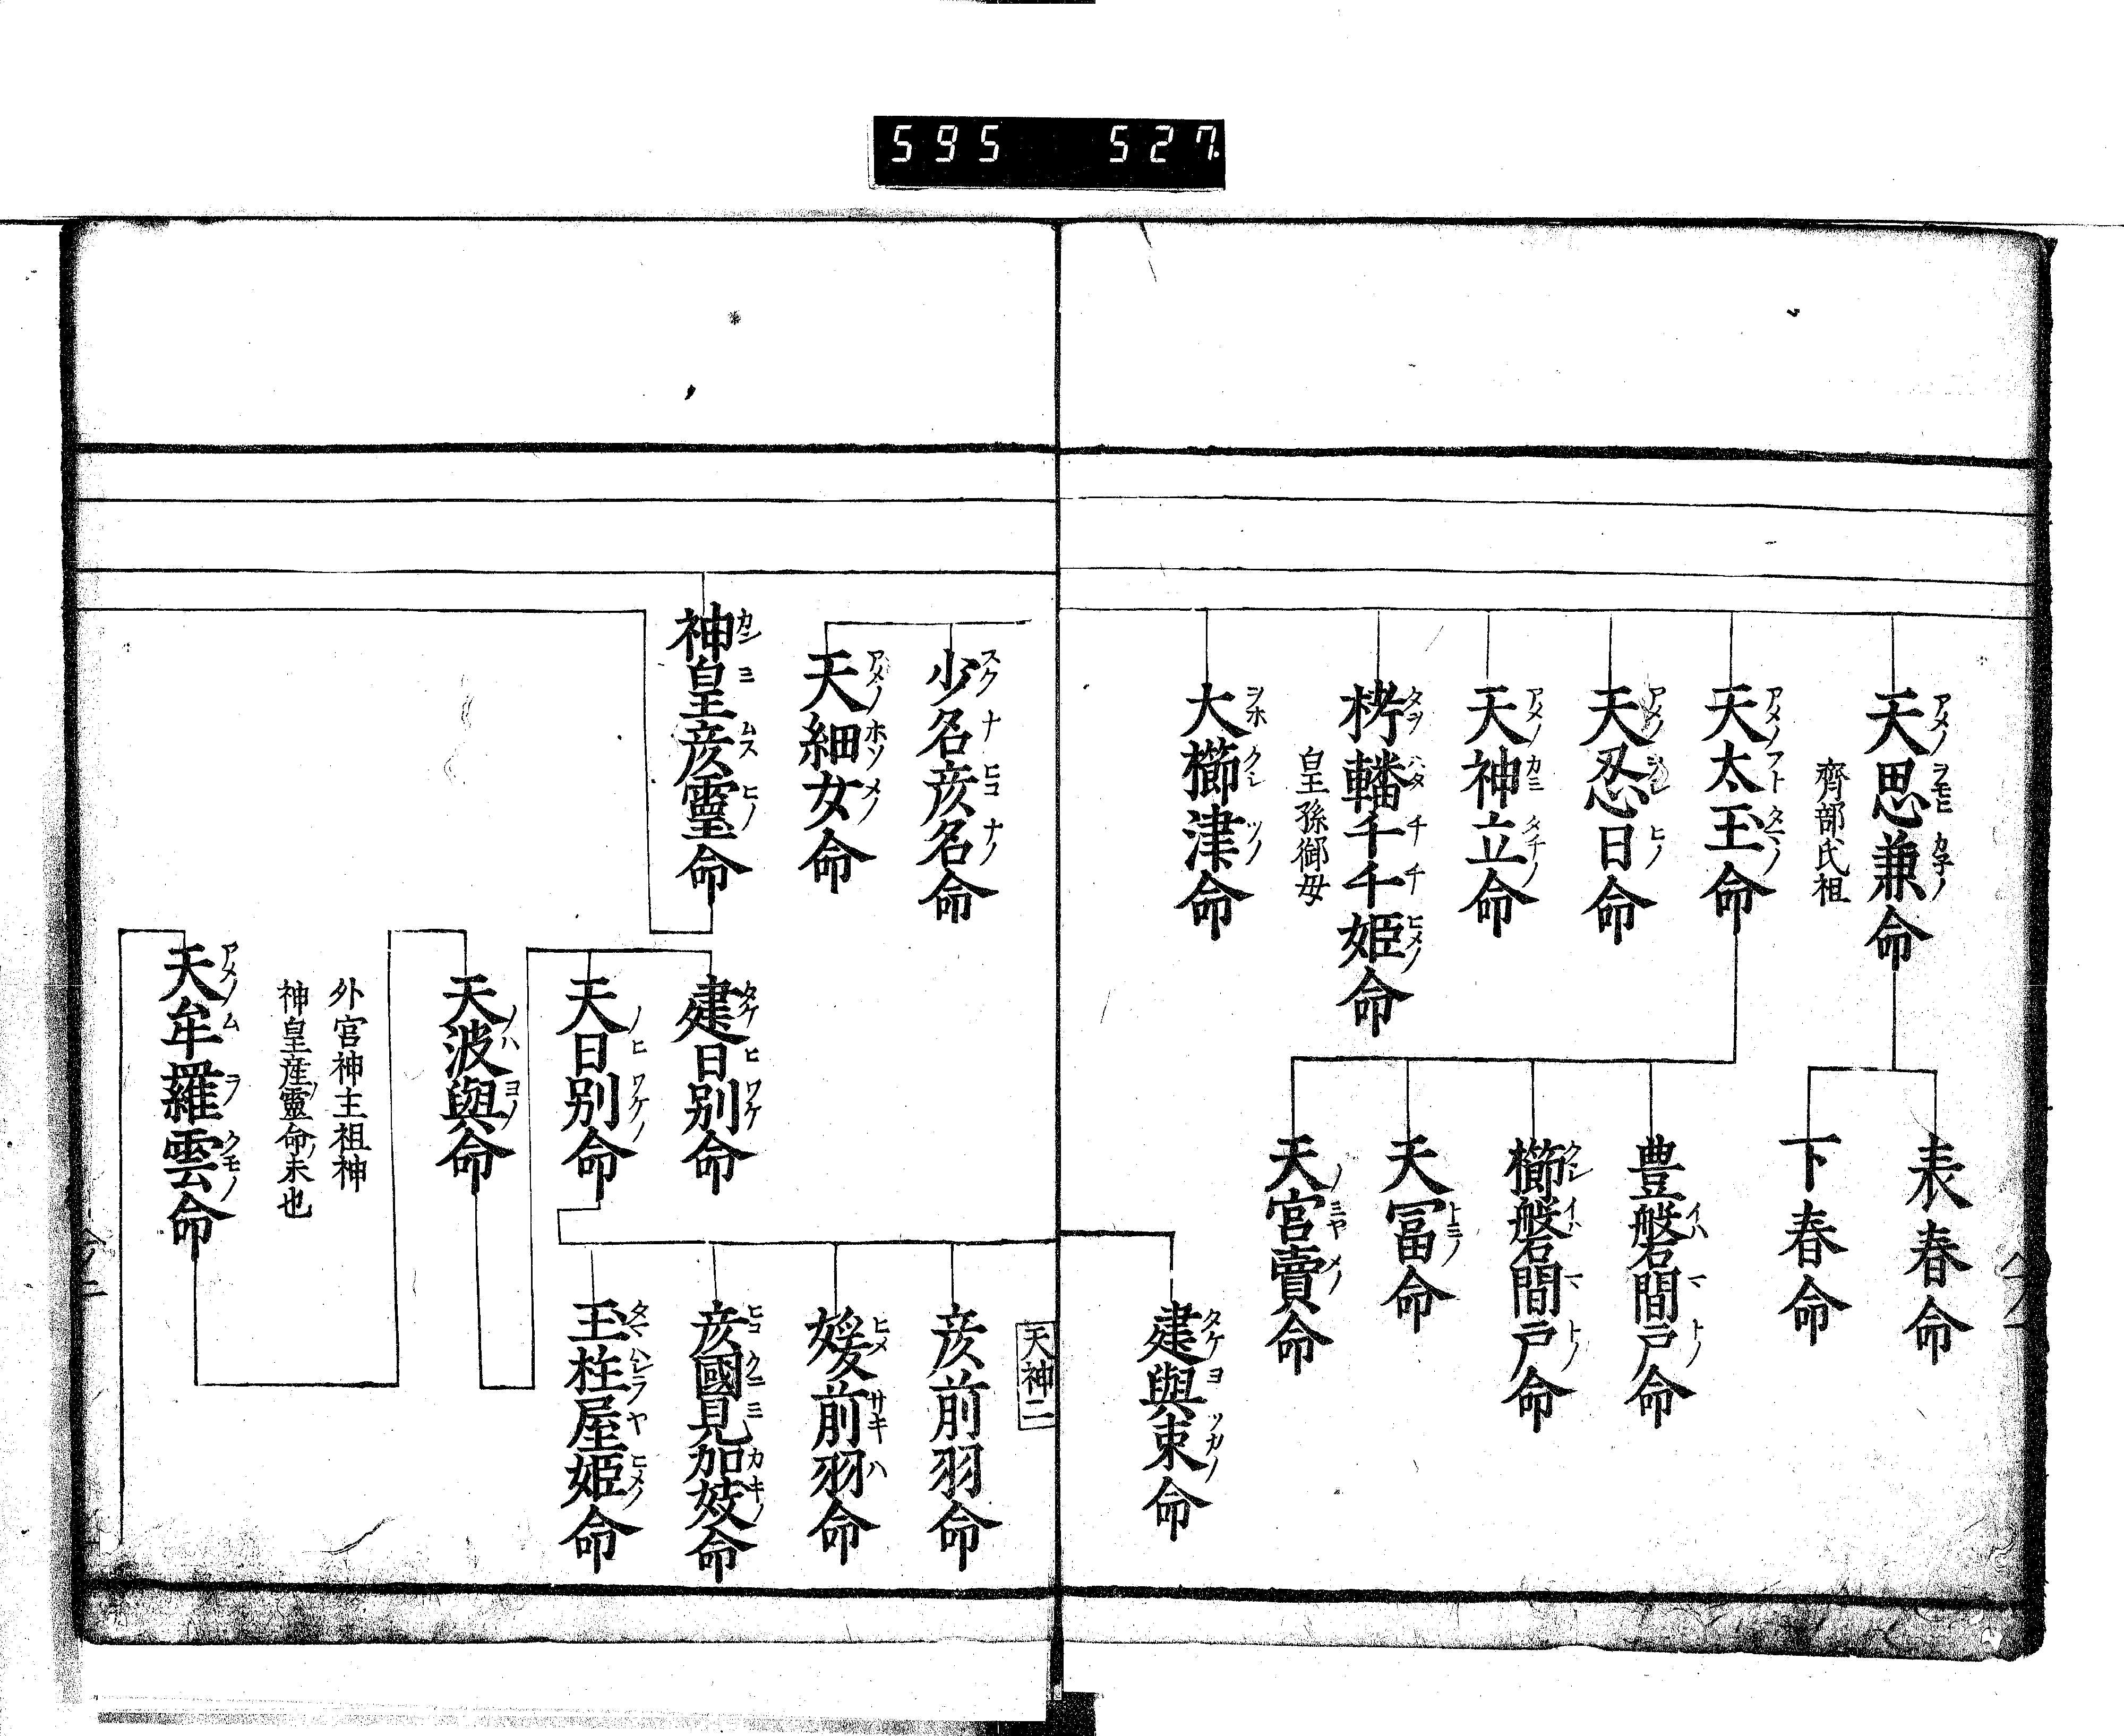 595 527
天思兼命
齊部氏祖
天太玉命
天忍日命
天神立命
栲幡千千姫命
皇孫御母
大櫛津命
表春命
下春命
豊磐間戸命
櫛磐間戸命
天冨命
天宮賣命
建與束命
天神二
少名彦名命
天細女命
神皇彦靈命
建日別命
天日別命
天波與命
外宮神主祖神
神皇産靈命ノ末也
天牟羅雲命
彦前羽命
媛前羽命
彦國見加妓命
玉柱屋姫命